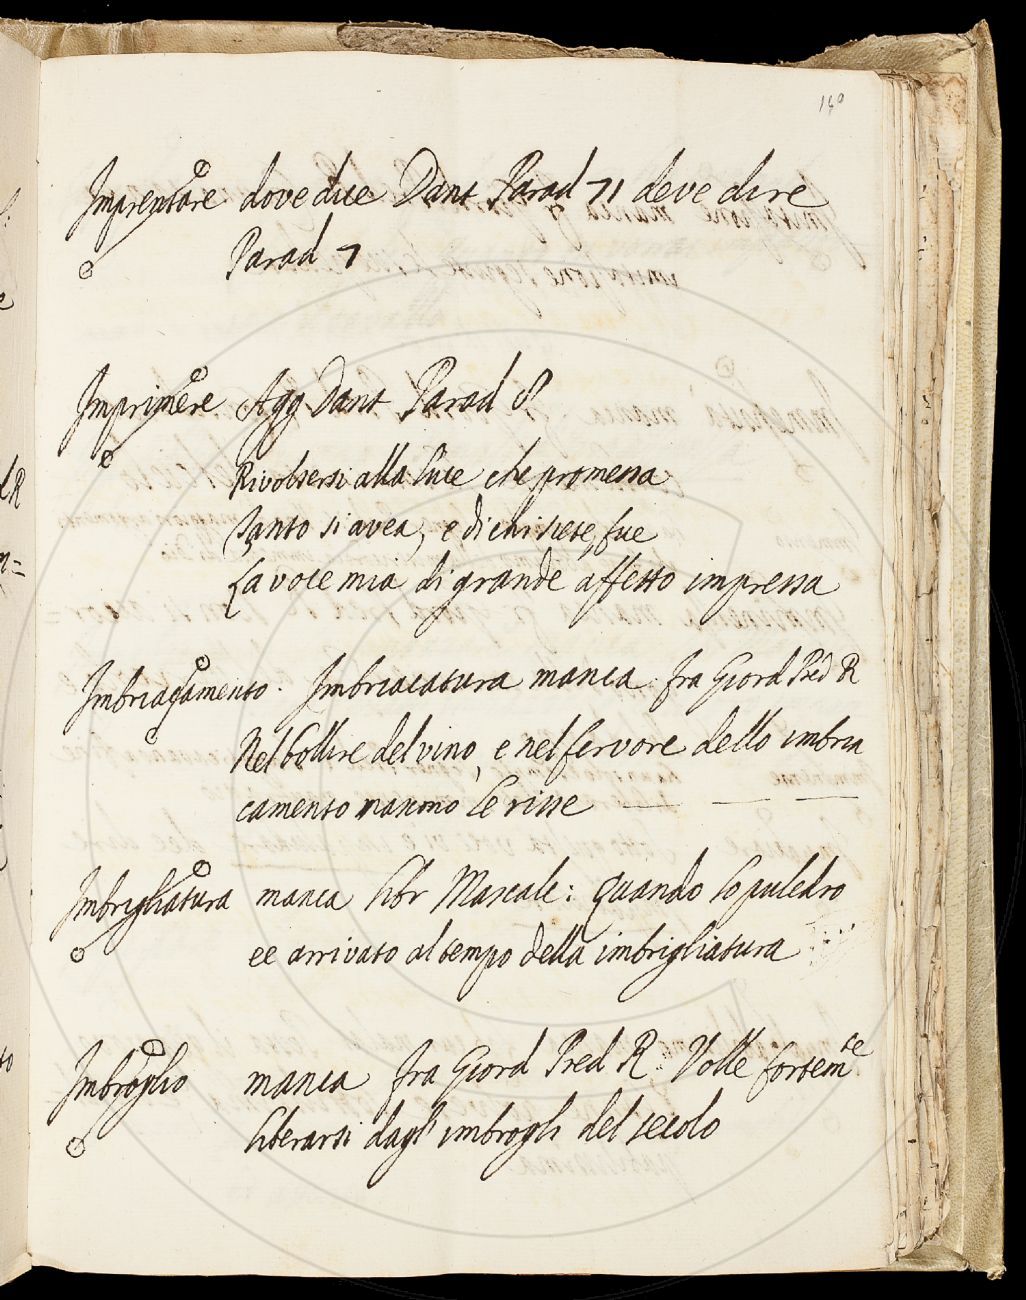 160
Imprentare dove dice Dant Parad 71 deve dire
Parad 7
Imprimere Agg Dant Parad 8
Rivolsersi alla luce che promessa
Tanto si avea, e di chi siete, fue
La voce mia di grande affetto impressa
Imbriacamento. Imbriacatura manca. fra Giord Pred R
Nel bollire del vino, e nel fervore dello imbria
camento nascono le risse
Imbrigliatura manca libr Mascalc: quando lo puledro
ee arrivato al tempo della imbrigliatura
Imbroglio manca fra Giord Pred R. Volle fortemte
liberarsi dagli imbrogli del secolo